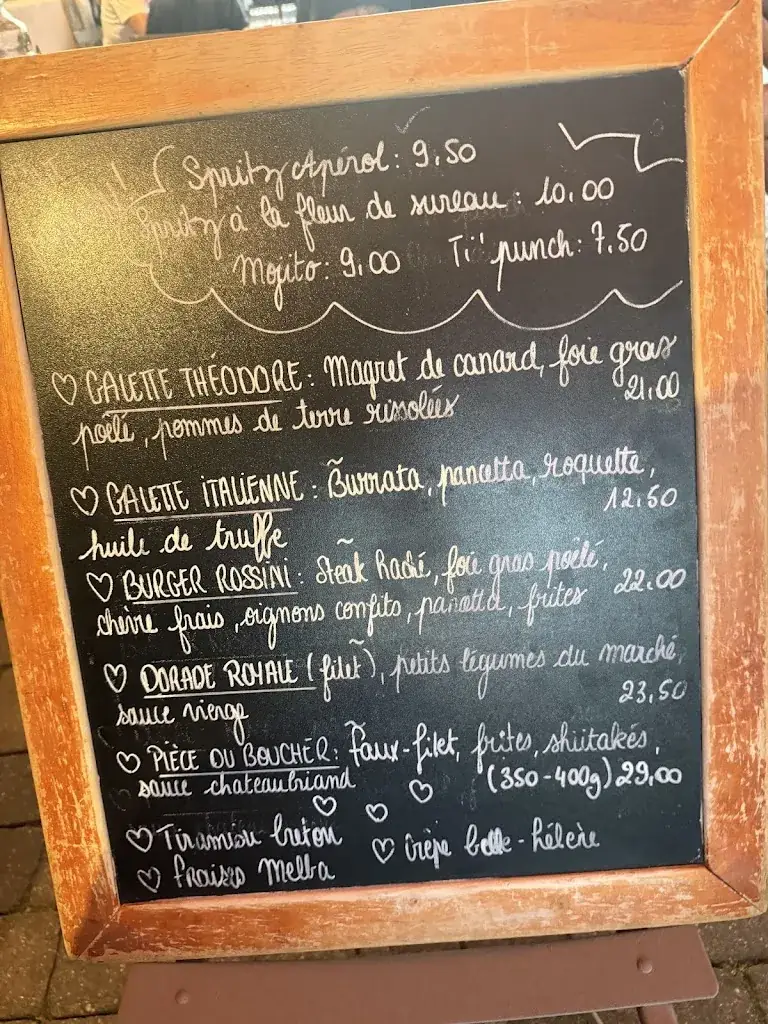 Spritz Apérol : 9.50
Spritz à la fleur de sureau : 10.00
Mojito : 9.00 Ti' punch : 7.50
GALETTE THÉODORE : Magret de canard, foie gras
poêlé, pommes de terre rissolées 21.00
GALETTE iTALiENNE : Burrata, pancetta, roquette,
huile de truffe 12.50
BURGER ROSSiNi : Steak haché, foie gras poêlé,
chèvre frais, oignons confits, pancetta, frites 22.00
DORADE ROYALE (filet), petits légumes du marché,
sauce vierge 23,50
PiÈCE DU BOUCHER : Faux-filet, frites, shiitakés,
sauce chateaubriand (350-400g) 29,00
Tiramisu breton
Crêpe belle-hélène
Fraises Melba